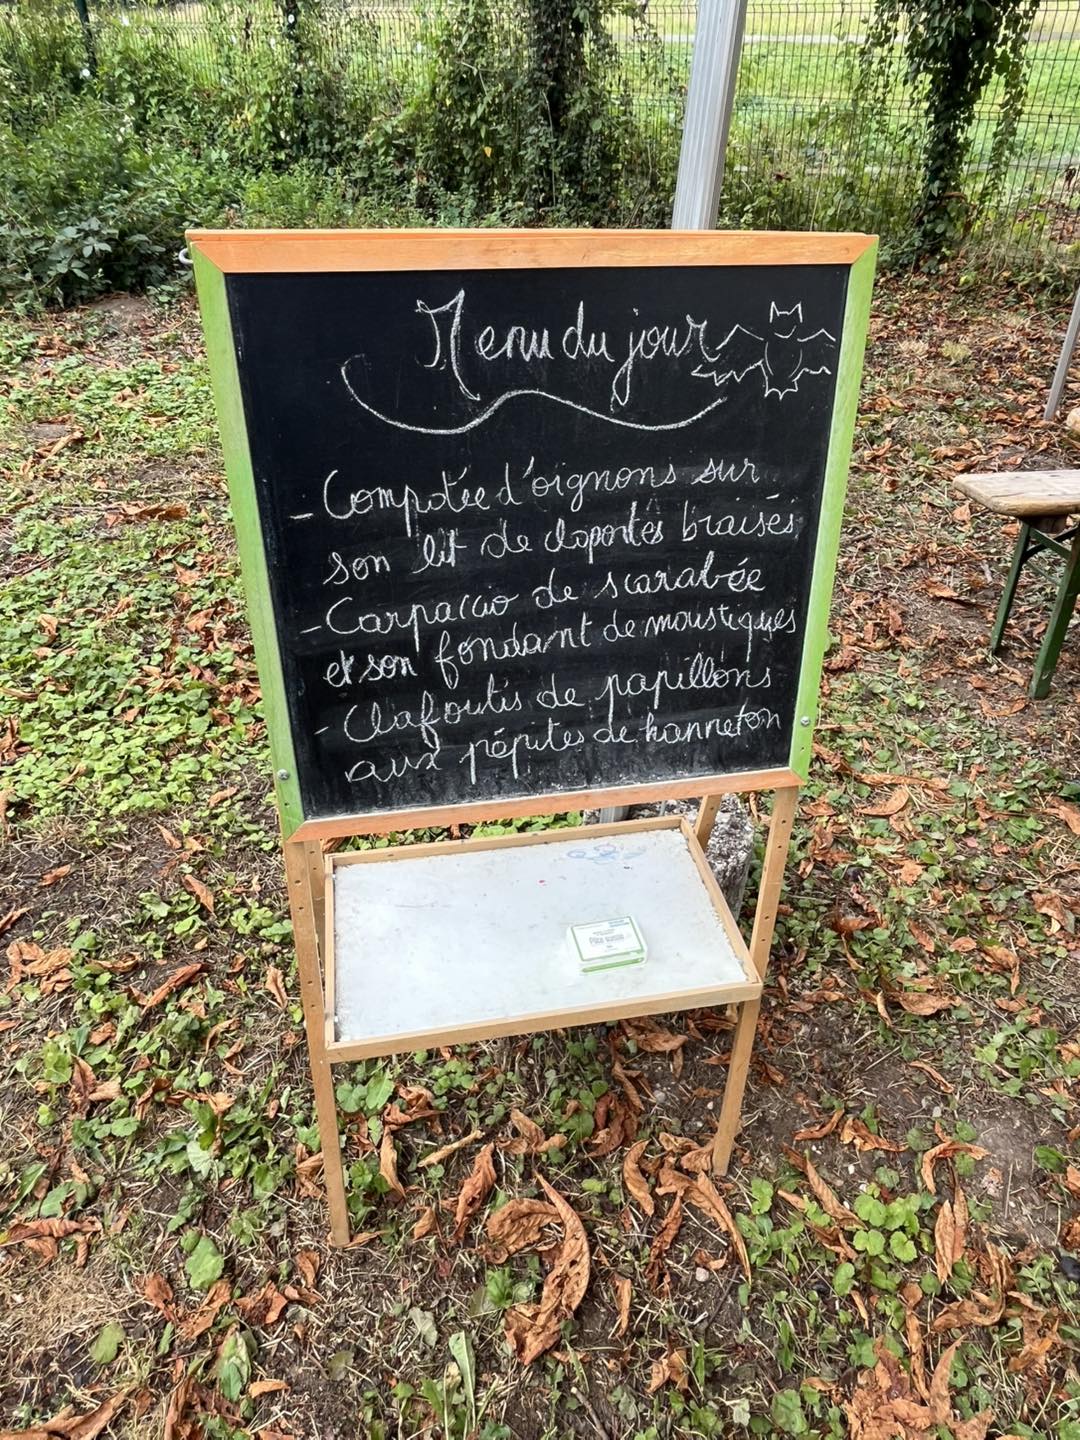 Menu du jour
- Compotée d'oignons sur
son lit de cloportes braisés
- Carpaccio de scarabée
et son fondant de moustiques
- Clafoutis de papillons
aux pépites de hanneton